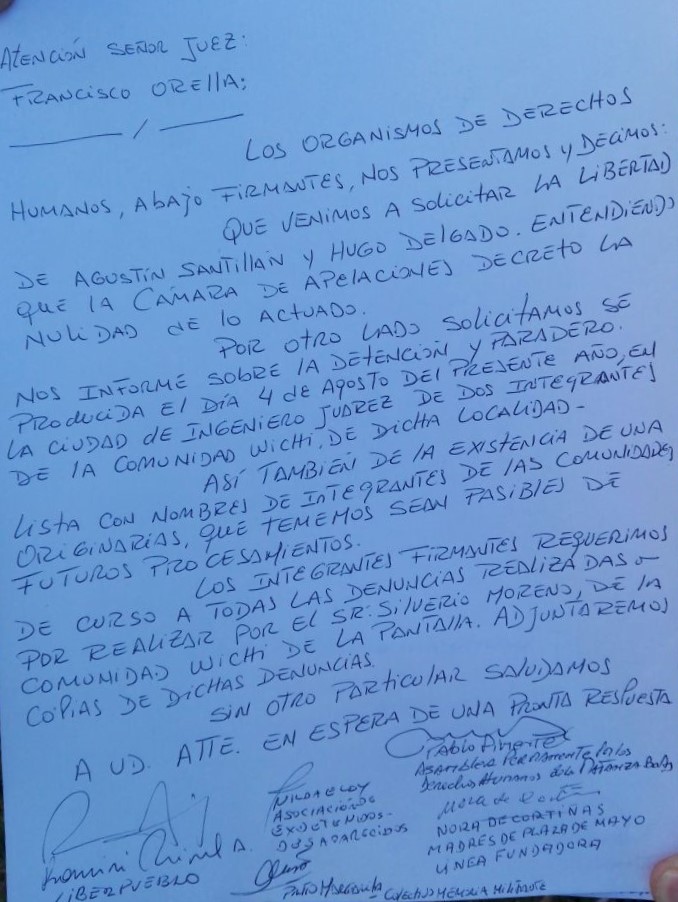 ATENCIÓN SEÑOR JUEZ:
FRANCISCO ORELLA:
______ / ______
LOS ORGANISMOS DE DERECHOS
HUMANOS, ABAJO FIRMANTES, NOS PRESENTAMOS Y DECIMOS:
QUE VENIMOS A SOLICITAR LA LIBERTAD
DE AGUSTÍN SANTILLÁN Y HUGO DELGADO. ENTENDIENDO
QUE LA CÁMARA DE APELACIONES DECRETO LA
NULIDAD DE LO ACTUADO.
POR OTRO LADO SOLICITAMOS SE
NOS INFORME SOBRE LA DETENCIÓN Y PARADERO.
PRODUCIDA EL DÍA 4 DE AGOSTO DEL PRESENTE AÑO, EN
LA CIUDAD DE INGENIERO JUAREZ DE DOS INTEGRANTES
DE LA COMUNIDAD WICHI. DE DICHA LOCALIDAD-
ASÍ TAMBIÉN DE LA EXISTENCIA DE UNA
LISTA CON NOMBRES DE INTEGRANTES DE LAS COMUNIDADES
ORIGINARIAS, QUE TEMEMOS SEAN PASIBLES DE
FUTUROS PROCESAMIENTOS.
LOS INTEGRANTES FIRMANTES REQUERIMOS
DE CURSO A TODAS LAS DENUNCIAS REALIZADAS O
POR REALIZAR POR EL SR. SILVERIO MORENO, DE LA
COMUNIDAD WICHI DE LA PANTALLA. ADJUNTAREMOS
COPIAS DE DICHAS DENUNCIAS.
SIN OTRO PARTICULAR SALUDAMOS
A UD. ATTE. EN ESPERA DE UNA PRONTA RESPUESTA
PABLO PIMENTEL
ASAMBLEA PERMANENTE POR LOS
DERECHOS HUMANOS DE LA MATANZA
NILDA ELOY
ASOCIACIÓN DE
EX DETENIDOS-
DESAPARECIDOS
NORA DE CORTIÑAS
MADRES DE PLAZA DE MAYO
LÍNEA FUNDADORA
LIBERPUEBLO
COLECTIVO MEMORIA MILITANTE